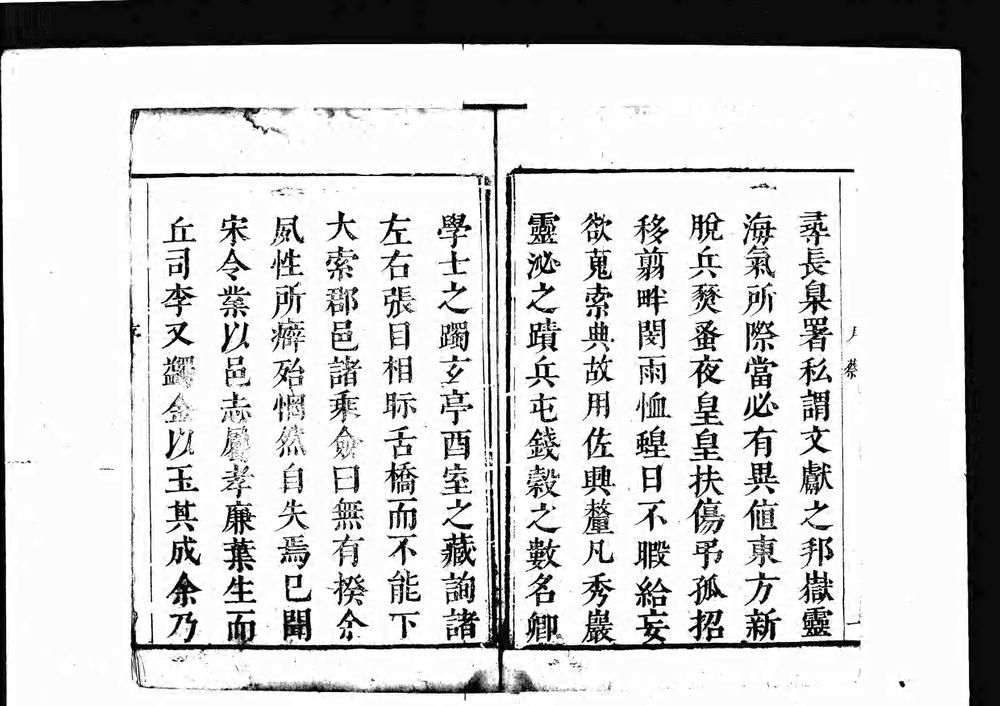 尋長臬署私謂文獻之邦嶽靈
海氣所際當必有異值東方新
脫兵燹蚤夜皇皇扶傷弔孤招
移翦畔閔雨恤蝗日不暇給妄
欲蒐索典故用佐興釐凡秀巖
靈泌之蹟兵屯錢穀之數名卿
學士之躅玄亭酉室之藏詢諸
左右張目相眎舌橋而不能下
大索郡邑諸乘僉曰無有揆余
夙性所癖殆惘然自失焉已聞
宋令業以邑志屬孝廉葉生而
丘司李又蠲金以玉其成余乃
序